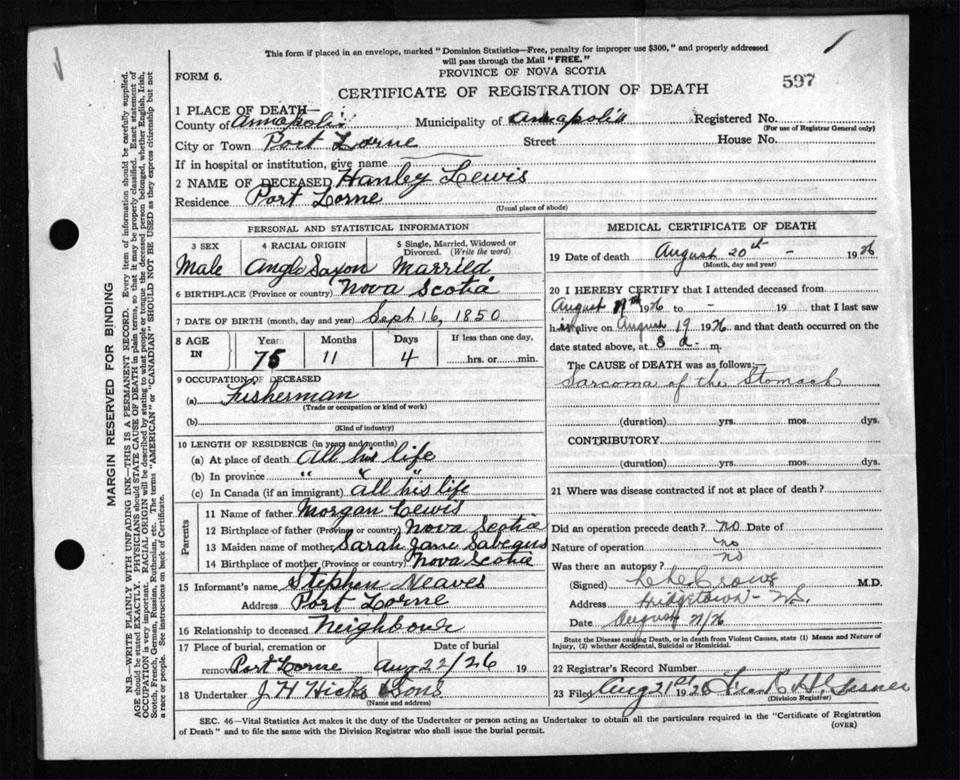 This form if placed in an envelope, marked "Dominion Statistics—Free, penalty for improper use $300," and properly addressed
will pass through the Mail "FREE."
PROVINCE OF NOVA SCOTIA
FORM 6.
CERTIFICATE OF REGISTRATION OF DEATH
597
1 PLACE OF DEATH—
County of Annapolis Municipality of Annapolis Registered No.
(For use of Registrar General only)
City or Town Port Lorne Street House No.
If in hospital or institution, give name
2 NAME OF DECEASED Hanley Lewis
Residence Port Lorne
(Usual place of abode)
PERSONAL AND STATISTICAL INFORMATION
3 SEX 4 RACIAL ORIGIN 5 Single, Married, Widowed or Divorced. (Write the word)
Male Anglo Saxon Married
6 BIRTHPLACE (Province or country) Nova Scotia
7 DATE OF BIRTH (month, day and year) Sept 16, 1850
8 AGE IN Years Months Days If less than one day,
75 11 4 hrs. or min.
9 OCCUPATION OF DECEASED
(a) Fisherman
(Trade or occupation or kind of work)
(b)
(Kind of industry)
10 LENGTH OF RESIDENCE (in years and months)
(a) At place of death All his life
(b) In province " " "
(c) In Canada (if an immigrant) All his life
Parents
11 Name of father Morgan Lewis
12 Birthplace of father (Province or country) Nova Scotia
13 Maiden name of mother Sarah Jane
14 Birthplace of mother (Province or country) Nova Scotia
15 Informant's name Stephen Neaves
Address Port Lorne
16 Relationship to deceased Neighbour
17 Place of burial, cremation or Date of burial
removal Port Lorne Aug 22/26 19
18 Undertaker J H Hicks & Sons
(Name and address)
MEDICAL CERTIFICATE OF DEATH
19 Date of death August 20th - 1926
(Month, day and year)
20 I HEREBY CERTIFY that I attended deceased from
August 19th 1926 to - 19 that I last saw
him alive on August 19 1926 and that death occurred on the
date stated above, at 3 a. m.
The CAUSE OF DEATH was as follows:—
Sarcoma of the Stomach
(duration) yrs. mos. dys.
CONTRIBUTORY
(duration) yrs. mos. dys.
21 Where was disease contracted if not at place of death?
Did an operation precede death? no Date of
Nature of operation no
Was there an autopsy? no
(Signed) M.D.
Address Bridgetown - N.S.
Date August 21/26
State the Disease causing Death, or in death from Violent Causes, state (1) Means and Nature of
Injury, (2) whether Accidental, Suicidal or Homicidal.
22 Registrar's Record Number
23 Filed Aug 21st 1926
(Division Registrar)
SEC. 46—Vital Statistics Act makes it the duty of the Undertaker or person acting as Undertaker to obtain all the particulars required in the "Certificate of Registration
of Death" and to file the same with the Division Registrar who shall issue the burial permit.
(OVER)
MARGIN RESERVED FOR BINDING
N.B.—WRITE PLAINLY WITH UNFADING INK—THIS IS A PERMANENT RECORD. Every item of information should be carefully supplied.
AGE should be stated EXACTLY. PHYSICIANS should STATE CAUSE OF DEATH in plain terms, so that it may be properly classified. Exact statement of
OCCUPATION is very important. RACIAL ORIGIN will be described by stating to what people or tongue the deceased person belonged, whether English, Irish,
Scotch, French, German, Russian, Ruthenian, etc. The terms "AMERICAN" or "CANADIAN" SHOULD NOT BE USED as they express citizenship but not
a race or people. See instructions on back of Certificate.